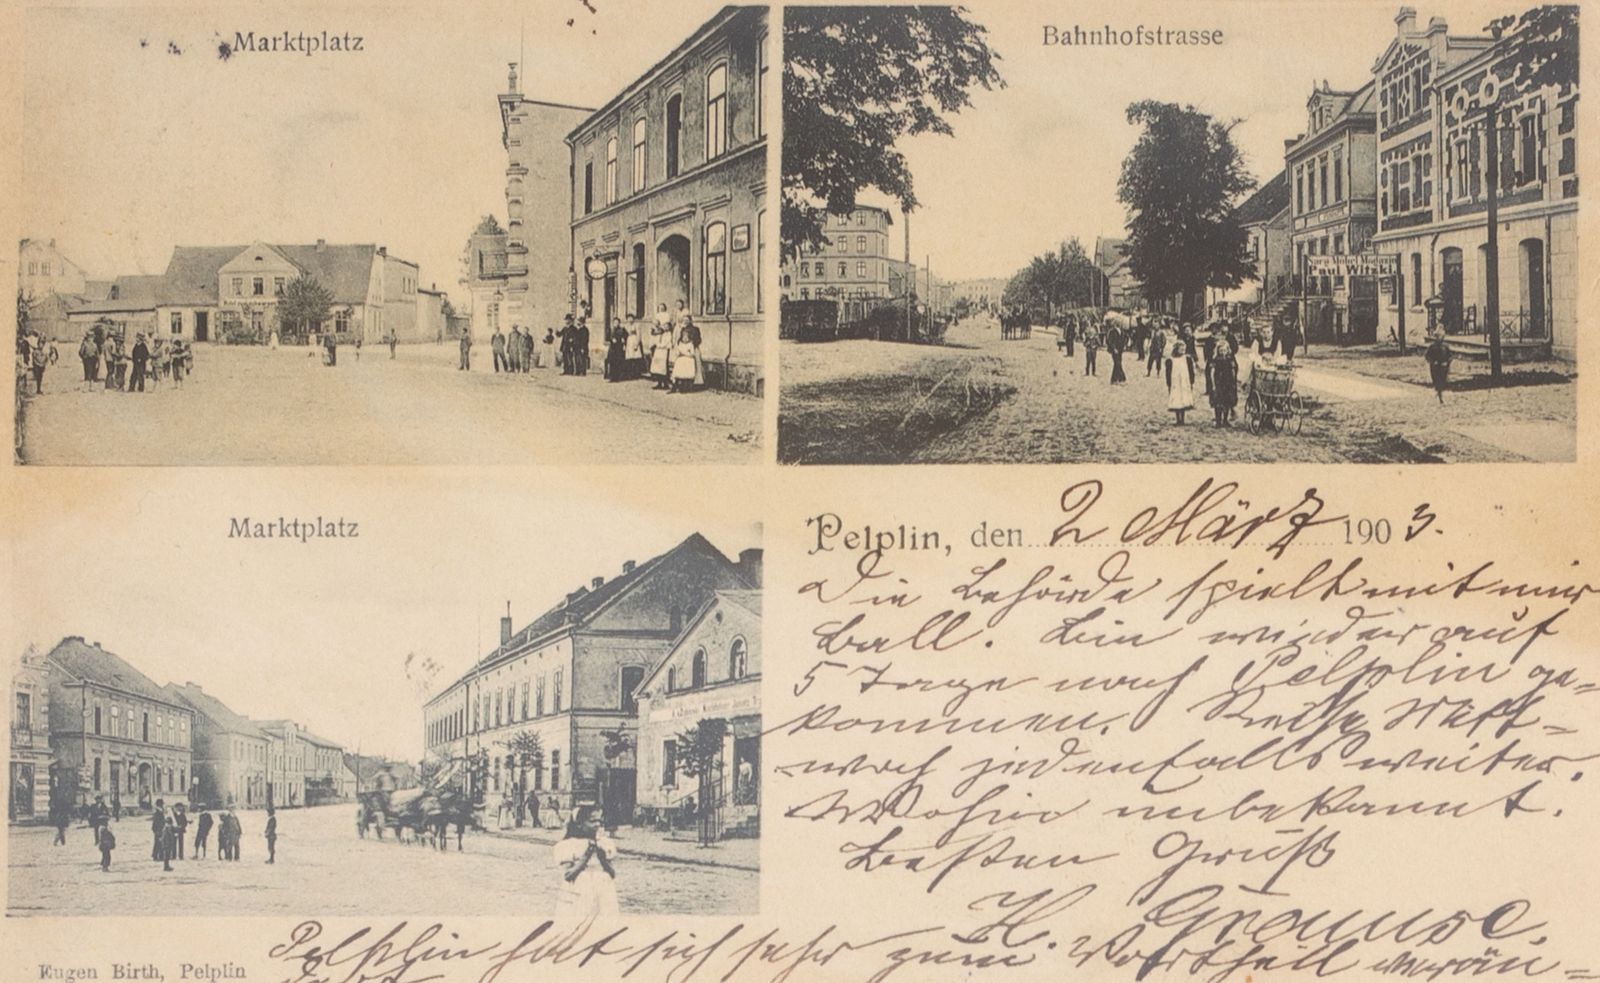 Marktplatz
Bahnhofstrasse
Sarg-Möbel Magazin
Paul Witzki
Marktplatz
Pelplin, den 2 März 1903.
Die Behörde spielt mit mir
Ball. Bin wieder auf
5 Tage nach Pelplin ge-
kommen. Reise Mitt-
woch jedenfalls weiter.
Wohin unbekannt.
Besten Gruß
H.
Pelplin hat sich sehr zum Vortheil verän-
dert
Eugen Birth, Pelplin